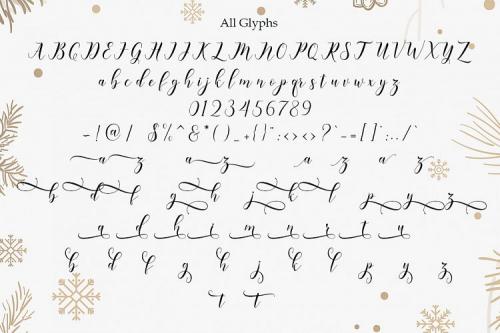 All Glyphs
A B C D E F G H I J K L M N O P Q R S T U V W X Y Z
a b c d e f g h i j k l m n o p q r s t u v w x y z
0 1 2 3 4 5 6 7 8 9
~ ! @ / $ % ^ & * ( ) _ + { } " : < > < > ? ` - = [ ] ' : , . / `
a z a z a z a z
b d f g h j k l p y z
a d h i m n r t u
b d f g h j k l p y z
t t